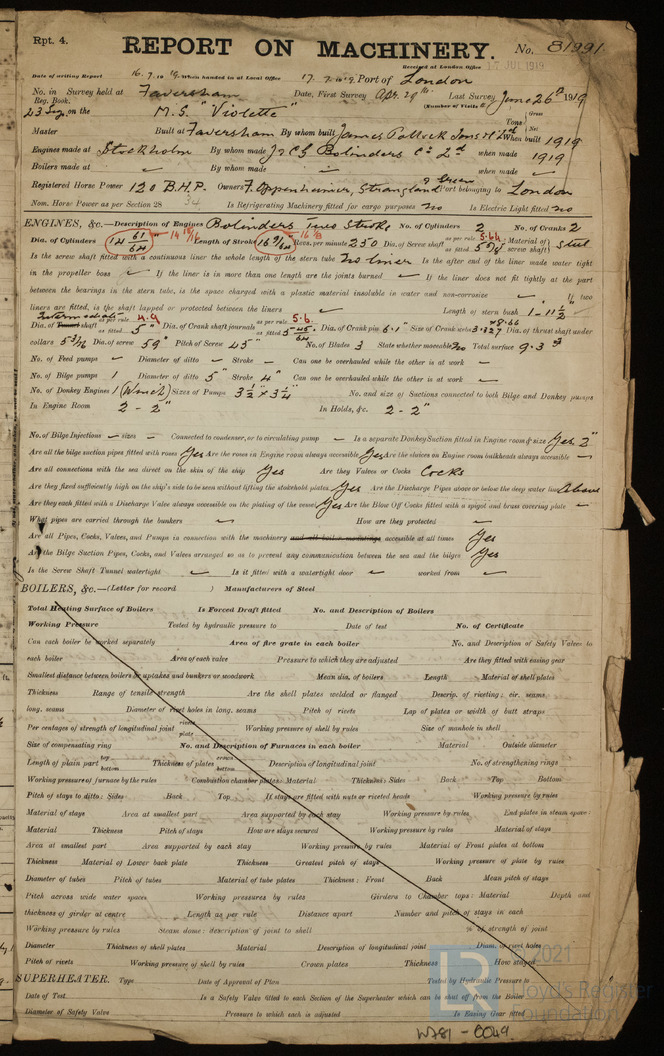 Rpt. 4.
REPORT ON MACHINERY. No. 81991
Received at London Office 17 JUL 1919
Date of writing Report 16.7.1919. When handed in at Local Office 17.7.1919. Port of London
No. in Survey held at Faversham Date, First Survey Apr. 29th Last Survey June 26th 1919
Reg. Book. (Number of Visits
on the M.S. "Violette" Tons Gross Net
Master Built at Faversham By whom built James Pollock Sons & Co Ld When built 1919
Engines made at Stockholm By whom made J & C G Bolinders Co Ld when made 1919
Boilers made at ✓ By whom made when made ✓
Registered Horse Power 120 B.H.P. Owners F. Oppenheimer, Port belonging to London
Nom. Horse Power as per Section 28 34 Is Refrigerating Machinery fitted for cargo purposes no Is Electric Light fitted no
ENGINES, &c.—Description of Engines Bolinders Two Stroke No. of Cylinders 2 No. of Cranks 2
Dia. of Cylinders 14 61/64 14 15/16 Length of Stroke 16 9/64 16 1/8 Revs. per minute 250 Dia. of Screw shaft as per rule 5.64 as fitted 5 7/8 Material of screw shaft Steel
Is the screw shaft fitted with a continuous liner the whole length of the stern tube no liner Is the after end of the liner made water tight
in the propeller boss ✓ If the liner is in more than one length are the joints burned ✓ If the liner does not fit tightly at the part
between the bearings in the stern tube, is the space charged with a plastic material insoluble in water and non-corrosive ✓ If two
liners are fitted, is the shaft lapped or protected between the liners ✓ Length of stern bush 1-11 1/2"
Dia. of Tunnel Intermediate shaft as per rule 4.9 as fitted 5" Dia. of Crank shaft journals as per rule 5.6 as fitted 5 45/64 Dia. of Crank pin 6.1" Size of Crank webs Dia. of thrust shaft under
collars 5 3/16 Dia. of screw 59" Pitch of Screw 45" No. of Blades 3 State whether moveable no Total surface 9.3
No. of Feed pumps ✓ Diameter of ditto ✓ Stroke ✓ Can one be overhauled while the other is at work ✓
No. of Bilge pumps 1 Diameter of ditto 5" Stroke 4" Can one be overhauled while the other is at work ✓
No. of Donkey Engines 1 (Winch) Sizes of Pumps 3 1/2" x 3 1/4" No. and size of Suctions connected to both Bilge and Donkey pumps
In Engine Room 2 - 2" In Holds, &c. 2 - 2"
No. of Bilge Injections ✓ sizes ✓ Connected to condenser, or to circulating pump ✓ Is a separate Donkey Suction fitted in Engine room & size Yes 2"
Are all the bilge suction pipes fitted with roses Yes Are the roses in Engine room always accessible Yes Are the sluices on Engine room bulkheads always accessible ✓
Are all connections with the sea direct on the skin of the ship Yes Are they Valves or Cocks Cocks
Are they fixed sufficiently high on the ship's side to be seen without lifting the stokehold plates Yes Are the Discharge Pipes above or below the deep water line Above
Are they each fitted with a Discharge Valve always accessible on the plating of the vessel Yes Are the Blow Off Cocks fitted with a spigot and brass covering plate ✓
What pipes are carried through the bunkers ✓ How are they protected ✓
Are all Pipes, Cocks, Valves, and Pumps in connection with the machinery and all boiler mountings accessible at all times Yes
Are the Bilge Suction Pipes, Cocks, and Valves arranged so as to prevent any communication between the sea and the bilges Yes
Is the Screw Shaft Tunnel watertight ✓ Is it fitted with a watertight door ✓ worked from ✓
BOILERS, &c.—(Letter for record ) Manufacturers of Steel
Total Heating Surface of Boilers Is Forced Draft fitted No. and Description of Boilers
Working Pressure Tested by hydraulic pressure to Date of test No. of Certificate
Can each boiler be worked separately Area of fire grate in each boiler No. and Description of Safety Valves to
each boiler Area of each valve Pressure to which they are adjusted Are they fitted with easing gear
Smallest distance between boilers or uptakes and bunkers or woodwork Mean dia. of boilers Length Material of shell plates
Thickness Range of tensile strength Are the shell plates welded or flanged Descrip. of riveting: cir. seams
long. seams Diameter of rivet holes in long. seams Pitch of rivets Lap of plates or width of butt straps
Per centages of strength of longitudinal joint rivets plate Working pressure of shell by rules Size of manhole in shell
Size of compensating ring No. and Description of Furnaces in each boiler Material Outside diameter
Length of plain part top bottom Thickness of plates crown bottom Description of longitudinal joint No. of strengthening rings
Working pressure of furnace by the rules Combustion chamber plates: Material Thickness: Sides Back Top Bottom
Pitch of stays to ditto: Sides Back Top If stays are fitted with nuts or riveted heads Working pressure by rules
Material of stays Area at smallest part Area supported by each stay Working pressure by rules End plates in steam space:
Material Thickness Pitch of stays How are stays secured Working pressure by rules Material of stays
Area at smallest part Area supported by each stay Working pressure by rules Material of Front plates at bottom
Thickness Material of Lower back plate Thickness Greatest pitch of stays Working pressure of plate by rules
Diameter of tubes Pitch of tubes Material of tube plates Thickness: Front Back Mean pitch of stays
Pitch across wide water spaces Working pressures by rules Girders to Chamber tops: Material Depth and
thickness of girder at centre Length as per rule Distance apart Number and pitch of stays in each
Working pressure by rules Steam dome: description of joint to shell % of strength of joint
Diameter Thickness of shell plates Material Description of longitudinal joint Diam. of rivet holes
Pitch of rivets Working pressure of shell by rules Crown plates Thickness How stayed
SUPERHEATER. Type Date of Approval of Plan Tested by Hydraulic Pressure to
Date of Test Is a Safety Valve fitted to each Section of the Superheater which can be shut off from the Boiler
Diameter of Safety Valve Pressure to which each is adjusted Is Easing Gear fitted
© 2021
Lloyd's Register
Foundation
W781-0049